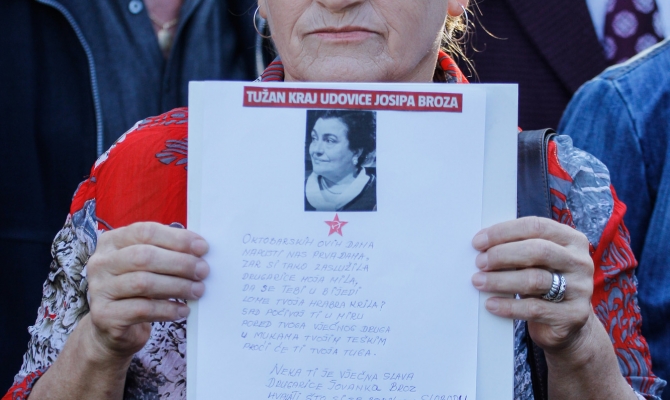 TUŽAN KRAJ UDOVICE JOSIPA BROZA
OKTOBARSKIH OVIH DANA
NAPUSTI NAS PRVA DAMA,
ZAR SI TAKO ZASLUŽILA
DRUGARICE MOJA MILA,
DA SE TEBI U BIJEDI
LOME TVOJA HRABRA KRILA?
SAD POČIVAŠ TI U MIRU
PORED TVOGA VJEČNOG DRUGA
U MUKAMA TVOJIM TEŠKIM
PROĆI ĆE TI TVOJA TUGA.
NEKA TI JE VJEČNA SLAVA
DRUGARICE JOVANKA BROZ